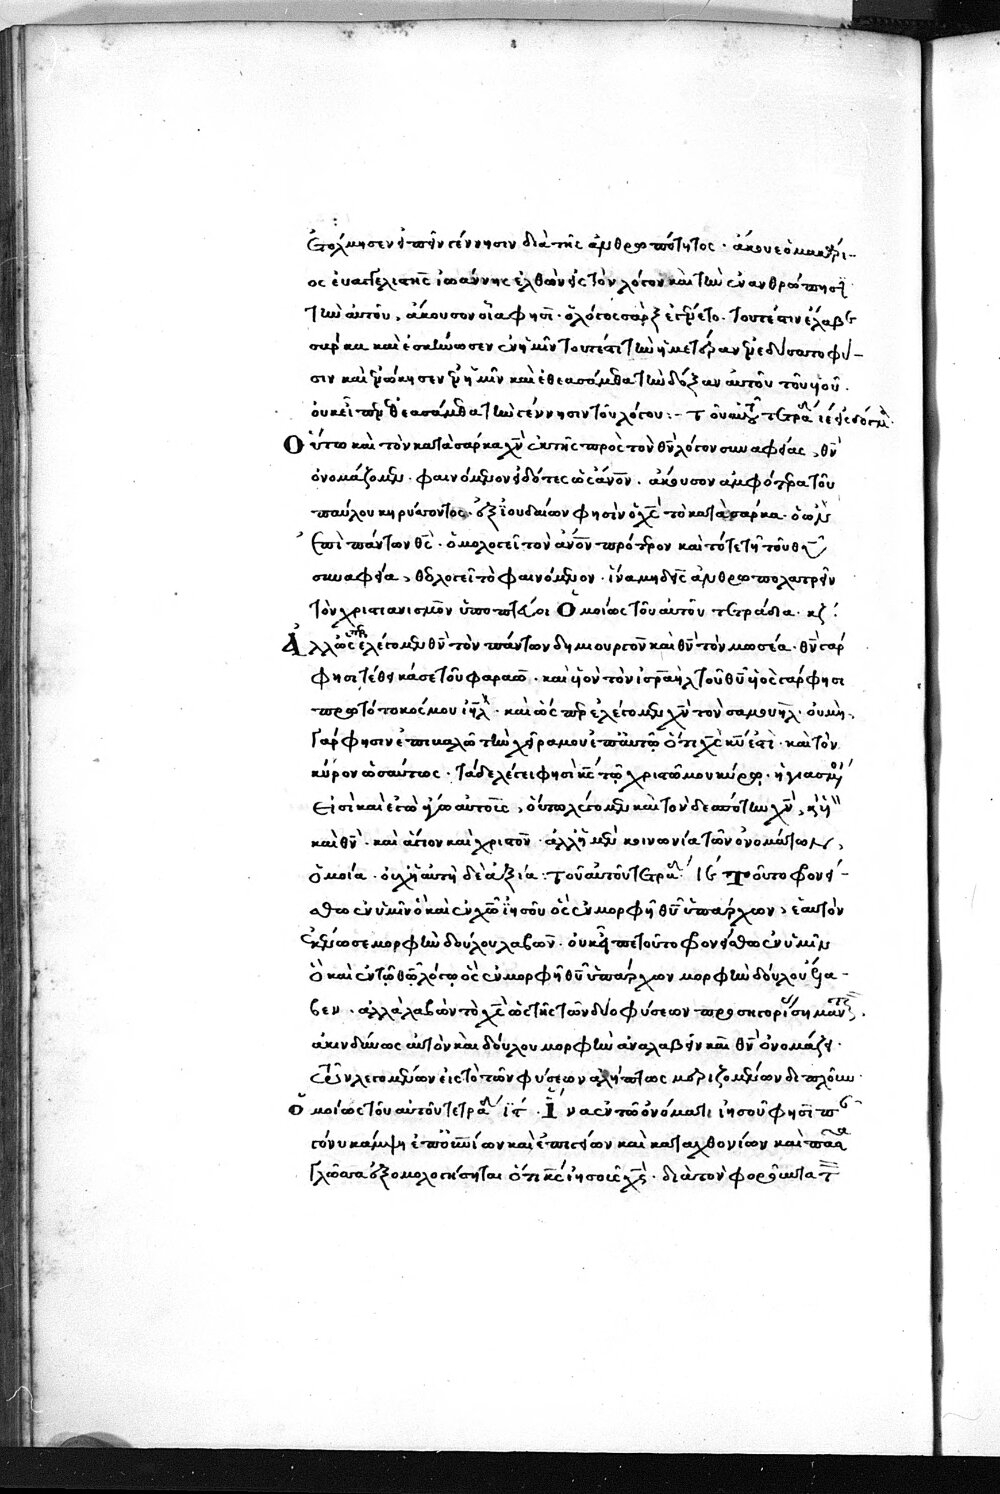 ἐτόλμησεν εἰπεῖν γέννησιν διὰ τῆς ἀνθρωπότητος · ἄκουε ὁ μακάρι-
ος ἐυαγγελιστὴς ἰωάννης ἐλθὼν εἰς τὸν λόγον καὶ τὴν ἐνανθρώπησϊ
τὴν αὐτοῦ, ἄκουσον οἷα φησὶ · ὁ λόγος σὰρξ ἐγένετο · τουτέστιν ἔλαβε
σάρκα καὶ ἐσκήνωσεν ἐν ἡμῖν τουτέστι τὴν ἡμετέραν ἐνεδύσατο φύ-
σιν καὶ ἐνώκησεν ἐν ἡμῖν καὶ ἐθεασάμεθα τὴν δόξαν αὐτοῦ τοῦ υἱοῦ ·
οὐκ εἶπεν ἐθεασάμεθα τὴν γέννησιν τοῦ λόγου :-
Οὕτω καὶ τὸν κατὰ σάρκα χν ἐκ τῆς πρὸς τὸν θν λόγον συναφείας, θν
ὀνομάζομεν · φαινόμενον εἰδότες ὡς ἄνον · ἄκουσον ἀμφότερα τοῦ
παύλου κηρύττοντος · ἐξ ἰουδαίων φησὶν ὁ χς τὸ κατὰ σάρκα · ὁ ὢν
ἐπὶ πάντων θς · ὁμολογεῖ τὸν ἄνον πρότερον καὶ τότε τῆ τοῦ θυ
συναφεία, θεολογεῖ τὸ φαινόμενον · ἵνα μηδεὶς ἀνθρωπολατρεῖν
τὸν χριστιανισμὸν ὑποπτεύοι Ὁμοίως τοῦ αὐτοῦ τετράδια · κζ :
Ἀλλ' ὥσπερ ἐλέγομεν θν τὸν πάντων δημιουργὸν καὶ θν τὸν μωσέα · θν γάρ
φησι τέθεικά σε τοῦ φαραω · καὶ υἱὸν τὸν ἰσραὴλ τοῦ θυ υἱὸς γάρ φησι
πρωτότοκός μου ιηλ · καὶ ὥσπερ ἐλέγομεν χν τὸν σαμουὴλ · οὐ μὴ
γάρ φησιν ἐπικαλῶ τὴν χεῖρα μου ἐπ' αὐτῷ ὅτι χς κυ ἐστὶ · καὶ τὸν
κύρον ὡσαύτως · τάδε λέγει φησὶ κς τῷ χριστῷ μου κύρῳ ·
καὶ θν · καὶ ἅγιον καὶ χριστὸν · ἀλλ' ἡ μὲν κοινωνία τῶν ὀνομάτων,
ὁμοία · οὐχ ἡ αὐτὴ δὲ ἀξία : τοῦ αὐτοῦ τετρα ιε Τοῦτο φρονεί-
σθω ἐν ὑμῖν ὃ καὶ ἐν χω ιησοῦ ὃς ἐν μορφῆ θυ ὑπάρχων, ἑαυτὸν
ἐκένωσε μορφὴν δούλου λαβὼν · οὐκ εἶπε τοῦτο φρονείσθω ἐν ὑμῖν
ὃ καὶ ἐν τῷ θω λόγῳ ὃς ἐν μορφῆ θυ ὑπάρχων μορφὴν δούλου ἔλα-
βεν · ἀλλὰ λαβὼν τὸ χς ὡς τῆς τῶν δύο φύσεων προσηγορίαν
ἀκινδύνως αὐτὸν καὶ δούλου μορφὴν ἀναλαβεῖν καὶ θν ὀνομάζει ·
τῶν λεγομένων εἰς τὸ τῶν φύσεων ἀλήπτως μεριζομένων διπλοῦν ·
ὁμοίως τοῦ αὐτοῦ τετρα · Ἵνα ἐν τῷ ὀνόματι ἰησοῦ φησὶ πᾶν
γόνυ κάμψη ἐπουρανίων καὶ ἐπιγείων καὶ καταχθονίων καὶ πᾶσα
γλῶσσα ἐξομολογήσηται ὅτι κς ἰησοῦς χς · διὰ τὸν φοροῦντα τ